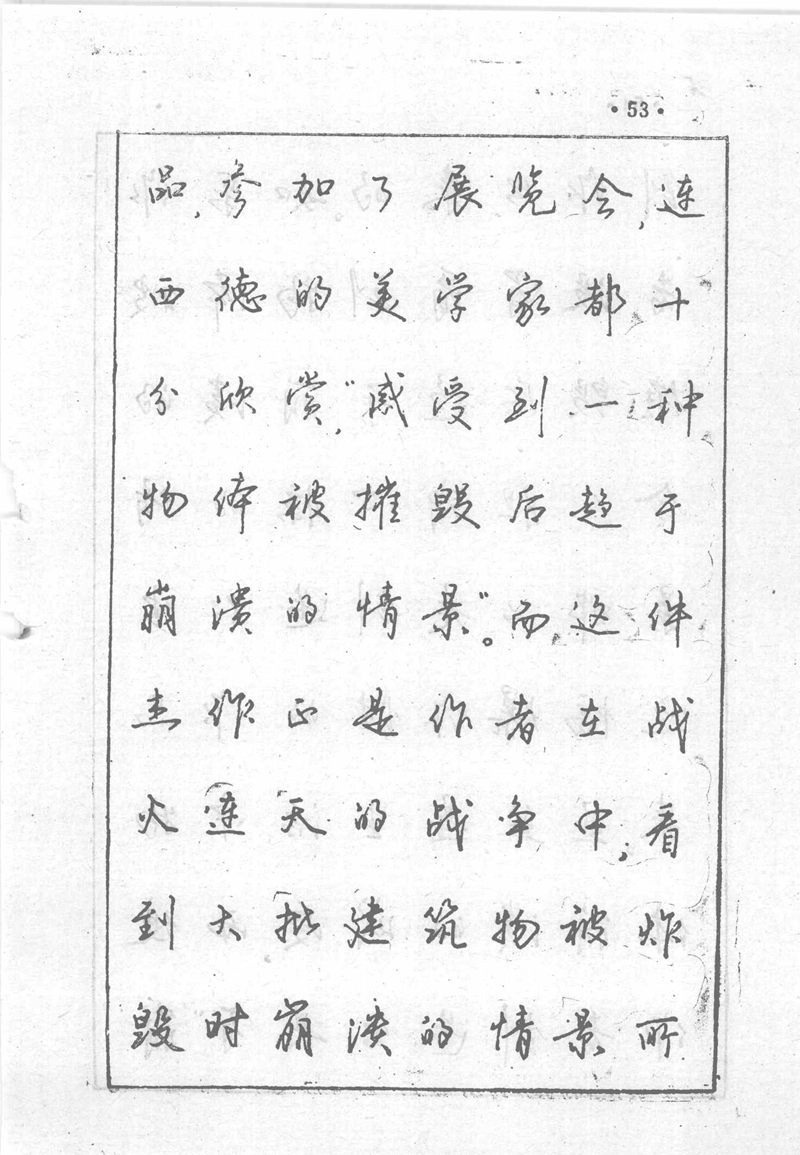 ·53·
品,参加了展览会,连
西德的美学家都十
分欣赏,“感受到一种
物体被摧毁后趋于
崩溃的情景”。而这件
杰作正是作者在战
火连天的战争中,看
到大批建筑物被炸
毁时崩溃的情景所